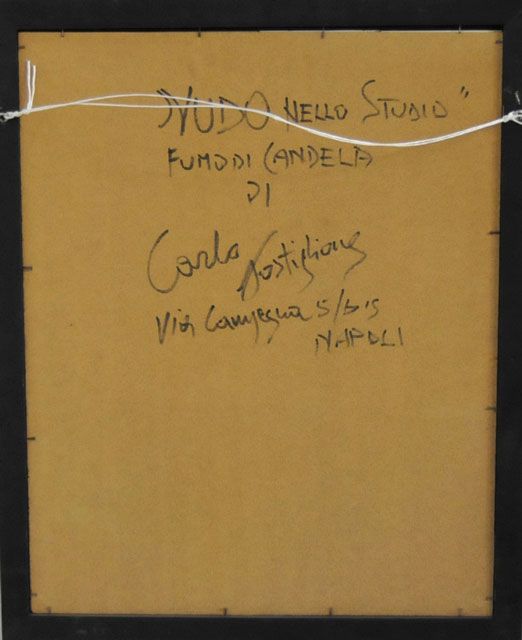 "NUDO NELLO STUDIO"
FUMO DI CANDELA
DI
Carlo Postiglione
Via Campegna 5/bis
NAPOLI